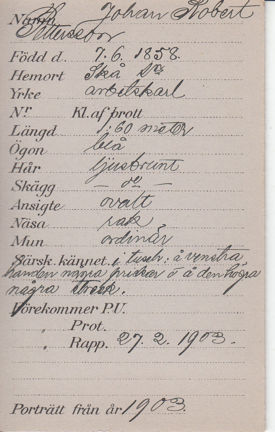 Namn Johan Robert
Pettersson
Född d. 7.6. 1858.
Hemort Skå
Yrke arbetskarl
Nr Kl. af brott
Längd 1:60 meter
Ögon blå
Hår ljusbrunt
Skägg — do —
Ansigte ovalt
Näsa rak
Mun ordinär
Särsk. kännet. i tusch: å venstra
handen några prickar o å den högra
några streck.
Förekommer P.U.
" Prot.
" Rapp. 27. 2. 1903.
Porträtt från år 1903.